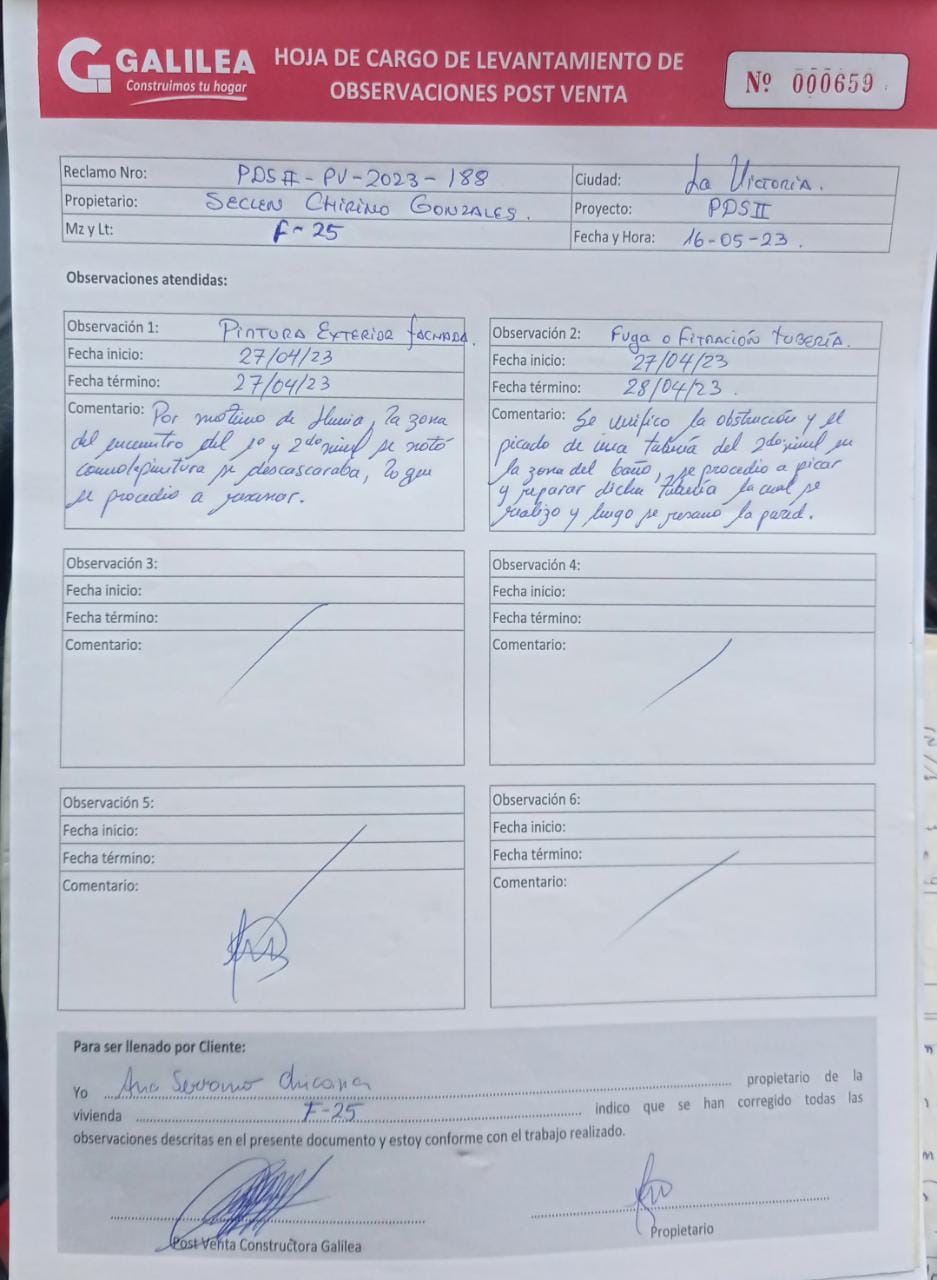 GALILEA
Construimos tu hogar
HOJA DE CARGO DE LEVANTAMIENTO DE
OBSERVACIONES POST VENTA
Nº 000659
Reclamo Nro: PDSII-PV-2023-188
Ciudad: La Victoria.
Propietario: Seclen Chirino Gonzales.
Proyecto: PDSII
Mz y Lt: F-25
Fecha y Hora: 16-05-23.
Observaciones atendidas:
Observación 1: Pintura Exterior fachada.
Fecha inicio: 27/04/23
Fecha término: 27/04/23
Comentario: Por motivo de lluvia, la zona
del encuentro del 1º y 2do nivel se notó
como la pintura se descascaraba, lo que
se procedio a resanar.
Observación 2: Fuga o Fitración tubería.
Fecha inicio: 27/04/23
Fecha término: 28/04/23.
Comentario: Se verifico la obstrucción y el
picado de una tubería del 2do nivel en
la zona del baño, se procedio a picar
y reparar dicha tubería la cual se
realizo y luego se resano la pared.
Observación 3:
Fecha inicio:
Fecha término:
Comentario:
Observación 4:
Fecha inicio:
Fecha término:
Comentario:
Observación 5:
Fecha inicio:
Fecha término:
Comentario:
Observación 6:
Fecha inicio:
Fecha término:
Comentario:
Para ser llenado por Cliente:
Yo Ana Serrano Chicana propietario de la
vivienda F-25 indico que se han corregido todas las
observaciones descritas en el presente documento y estoy conforme con el trabajo realizado.
Post Venta Constructora Galilea
Propietario